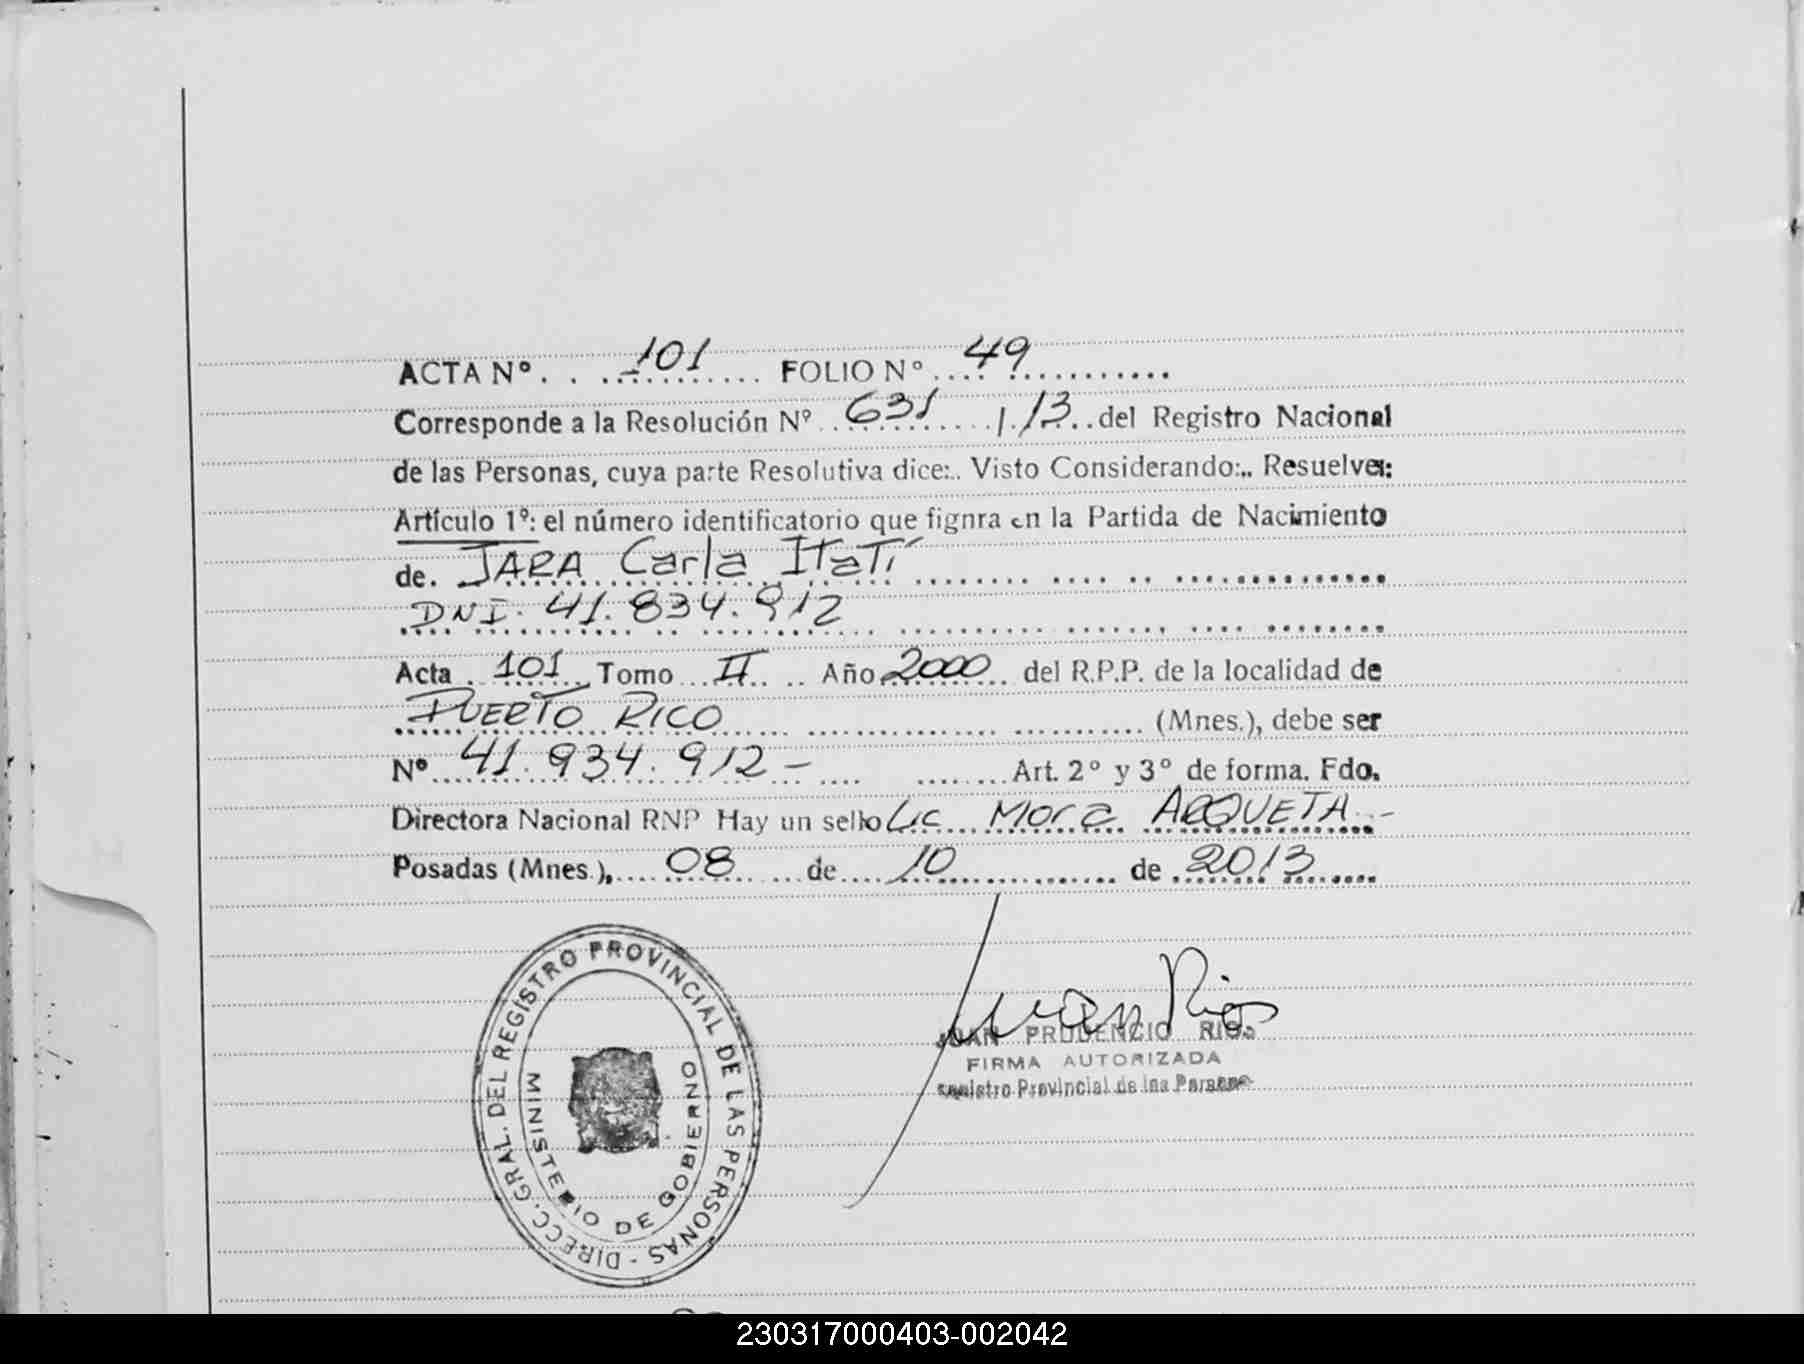 ACTA Nº. . ...101......... FOLIO Nº....49...........
Corresponde a la Resolución Nº...631.....|./13..del Registro Nacional
de las Personas, cuya parte Resolutiva dice:.. Visto Considerando:.. Resuelve:
Artículo 1º: el número identificatorio que fignra en la Partida de Nacimiento
de. JARA Carla Itatí
DNI. 41.834.912
Acta . 101 Tomo ...II.. .. Año 2000 ... del R.P.P. de la localidad de
PUERTO RICO ........... (Mnes.), debe ser
Nº 41.934.912 - .... ........Art. 2º y 3º de forma. Fdo.
Directora Nacional RNP Hay un sello Lic Mora ARQUETA.-
Posadas (Mnes.),.... 08 ...de.... 10 .............. de 2013
DIRECC. GRAL. DEL REGISTRO PROVINCIAL DE LAS PERSONAS -
MINISTERIO DE GOBIERNO
Juan Rios
JUAN PRUDENCIO RIOS
FIRMA AUTORIZADA
Registro Provincial de las Personas
230317000403-002042